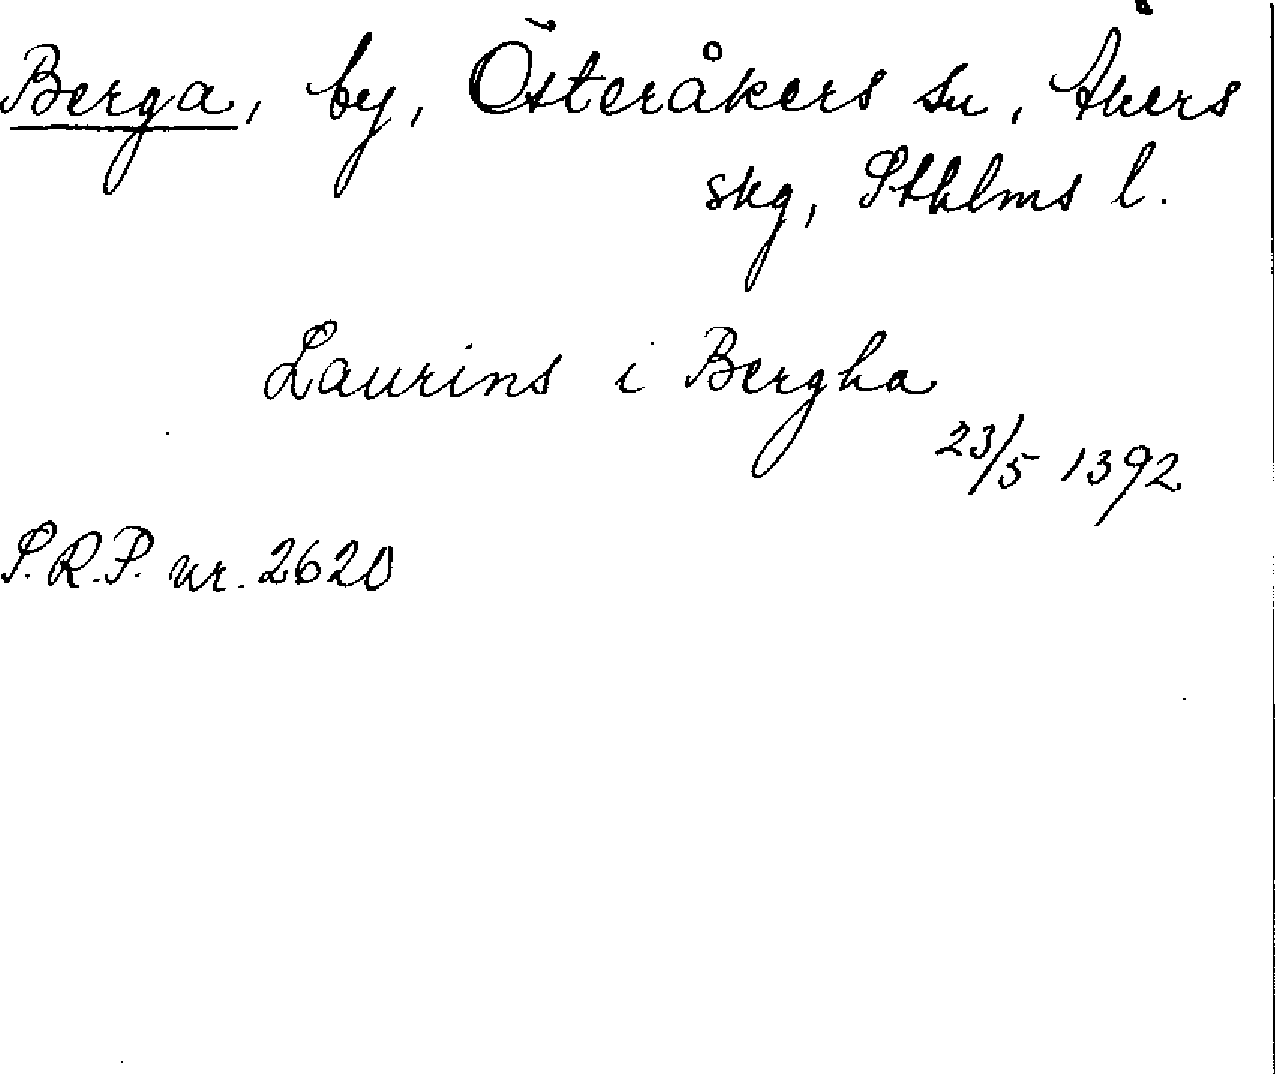 Berga, by, Österåkers sn, Åkers
skg, Sthlms l.
Laurins i Bergha
23/5 1392
S.R.P. nr. 2620